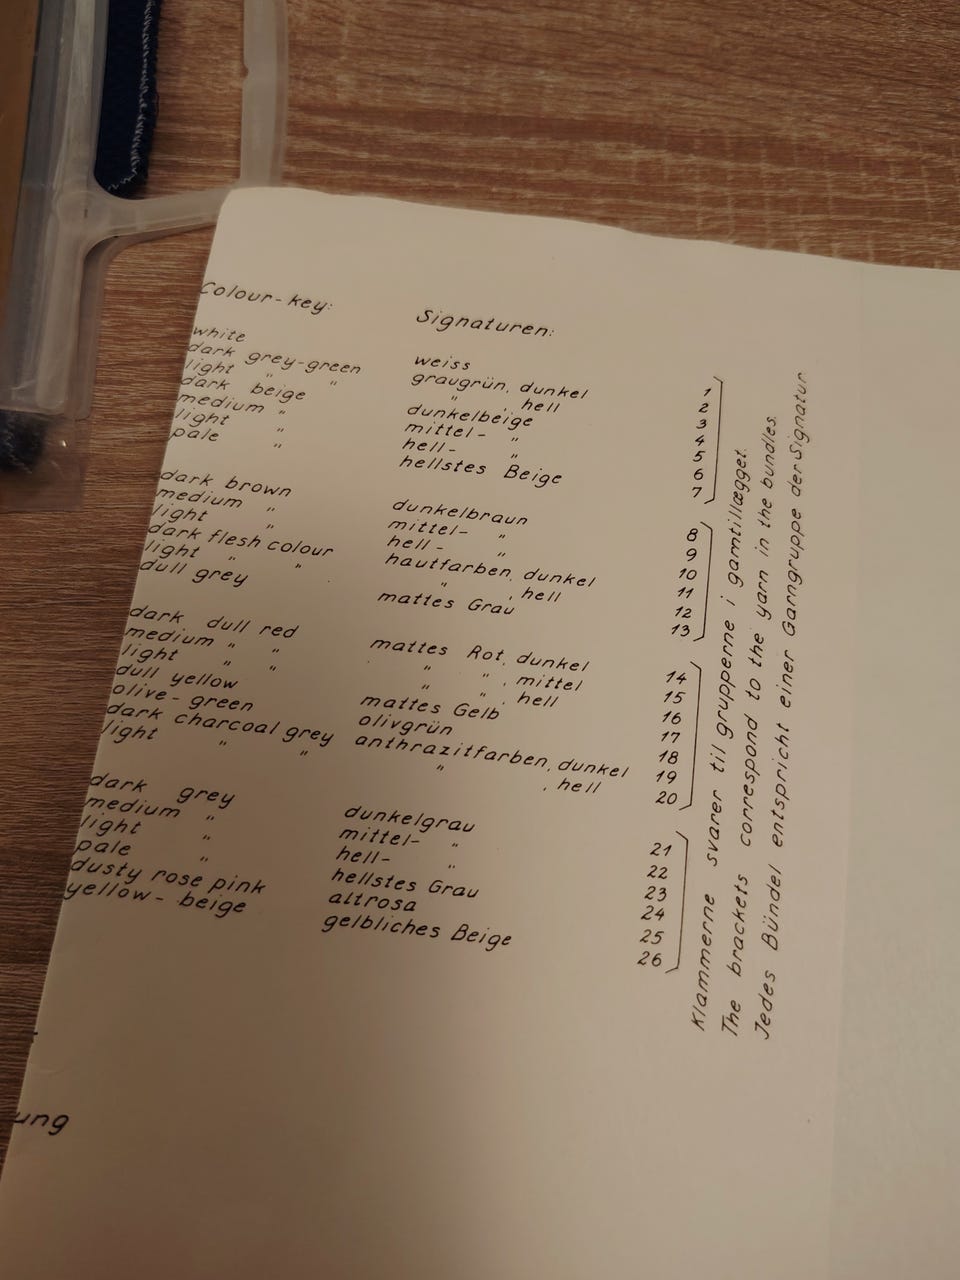 Colour-key: Signaturen:
white weiss 1
dark grey-green graugrün, dunkel 2
light " " " , hell 3
dark beige dunkelbeige 4
medium " mittel- " 5
light " hell- " 6
pale " hellstes Beige 7
dark brown dunkelbraun 8
medium " mittel- " 9
light " hell- " 10
dark flesh colour hautfarben, dunkel 11
light " " " , hell 12
dull grey mattes Grau 13
dark dull red mattes Rot, dunkel 14
medium " " " " , mittel 15
light " " " " , hell 16
dull yellow mattes Gelb 17
olive-green olivgrün 18
dark charcoal grey anthrazitfarben, dunkel 19
light " " " , hell 20
dark grey dunkelgrau 21
medium " mittel- " 22
light " hell- " 23
pale " hellstes Grau 24
dusty rose pink altrosa 25
yellow-beige gelbliches Beige 26
Klammerne svarer til grupperne i garntillægget.
The brackets correspond to the yarn in the bundles.
Jedes Bündel entspricht einer Garngruppe der Signatur
ung